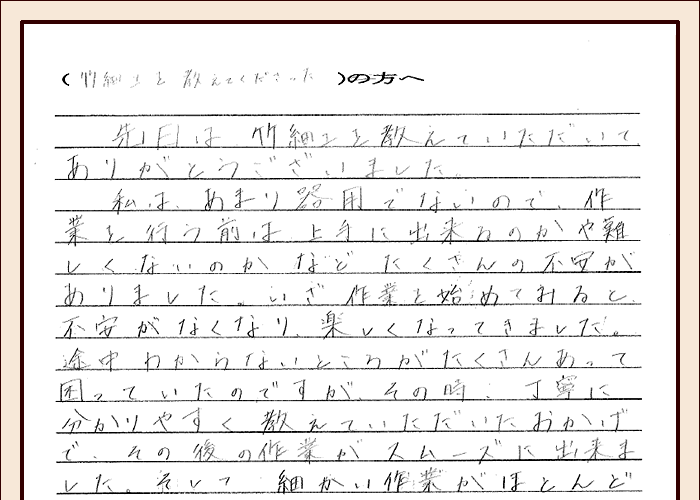 (竹細工を教えてくださった)の方へ
先日は竹細工を教えていただいて、
ありがとうございました。
私は、あまり器用でないので、作
業を行う前は上手に出来るのかや難
しくないのかなどたくさんの不安が
ありました。いざ作業を始めてみると、
不安がなくなり、楽しくなってきました。
途中わからないところがたくさんあって
困っていたのですが、その時、丁寧に
分かりやすく教えていただいたおかげ
で、その後の作業がスムーズに出来ま
した。そして細かい作業がほとんど